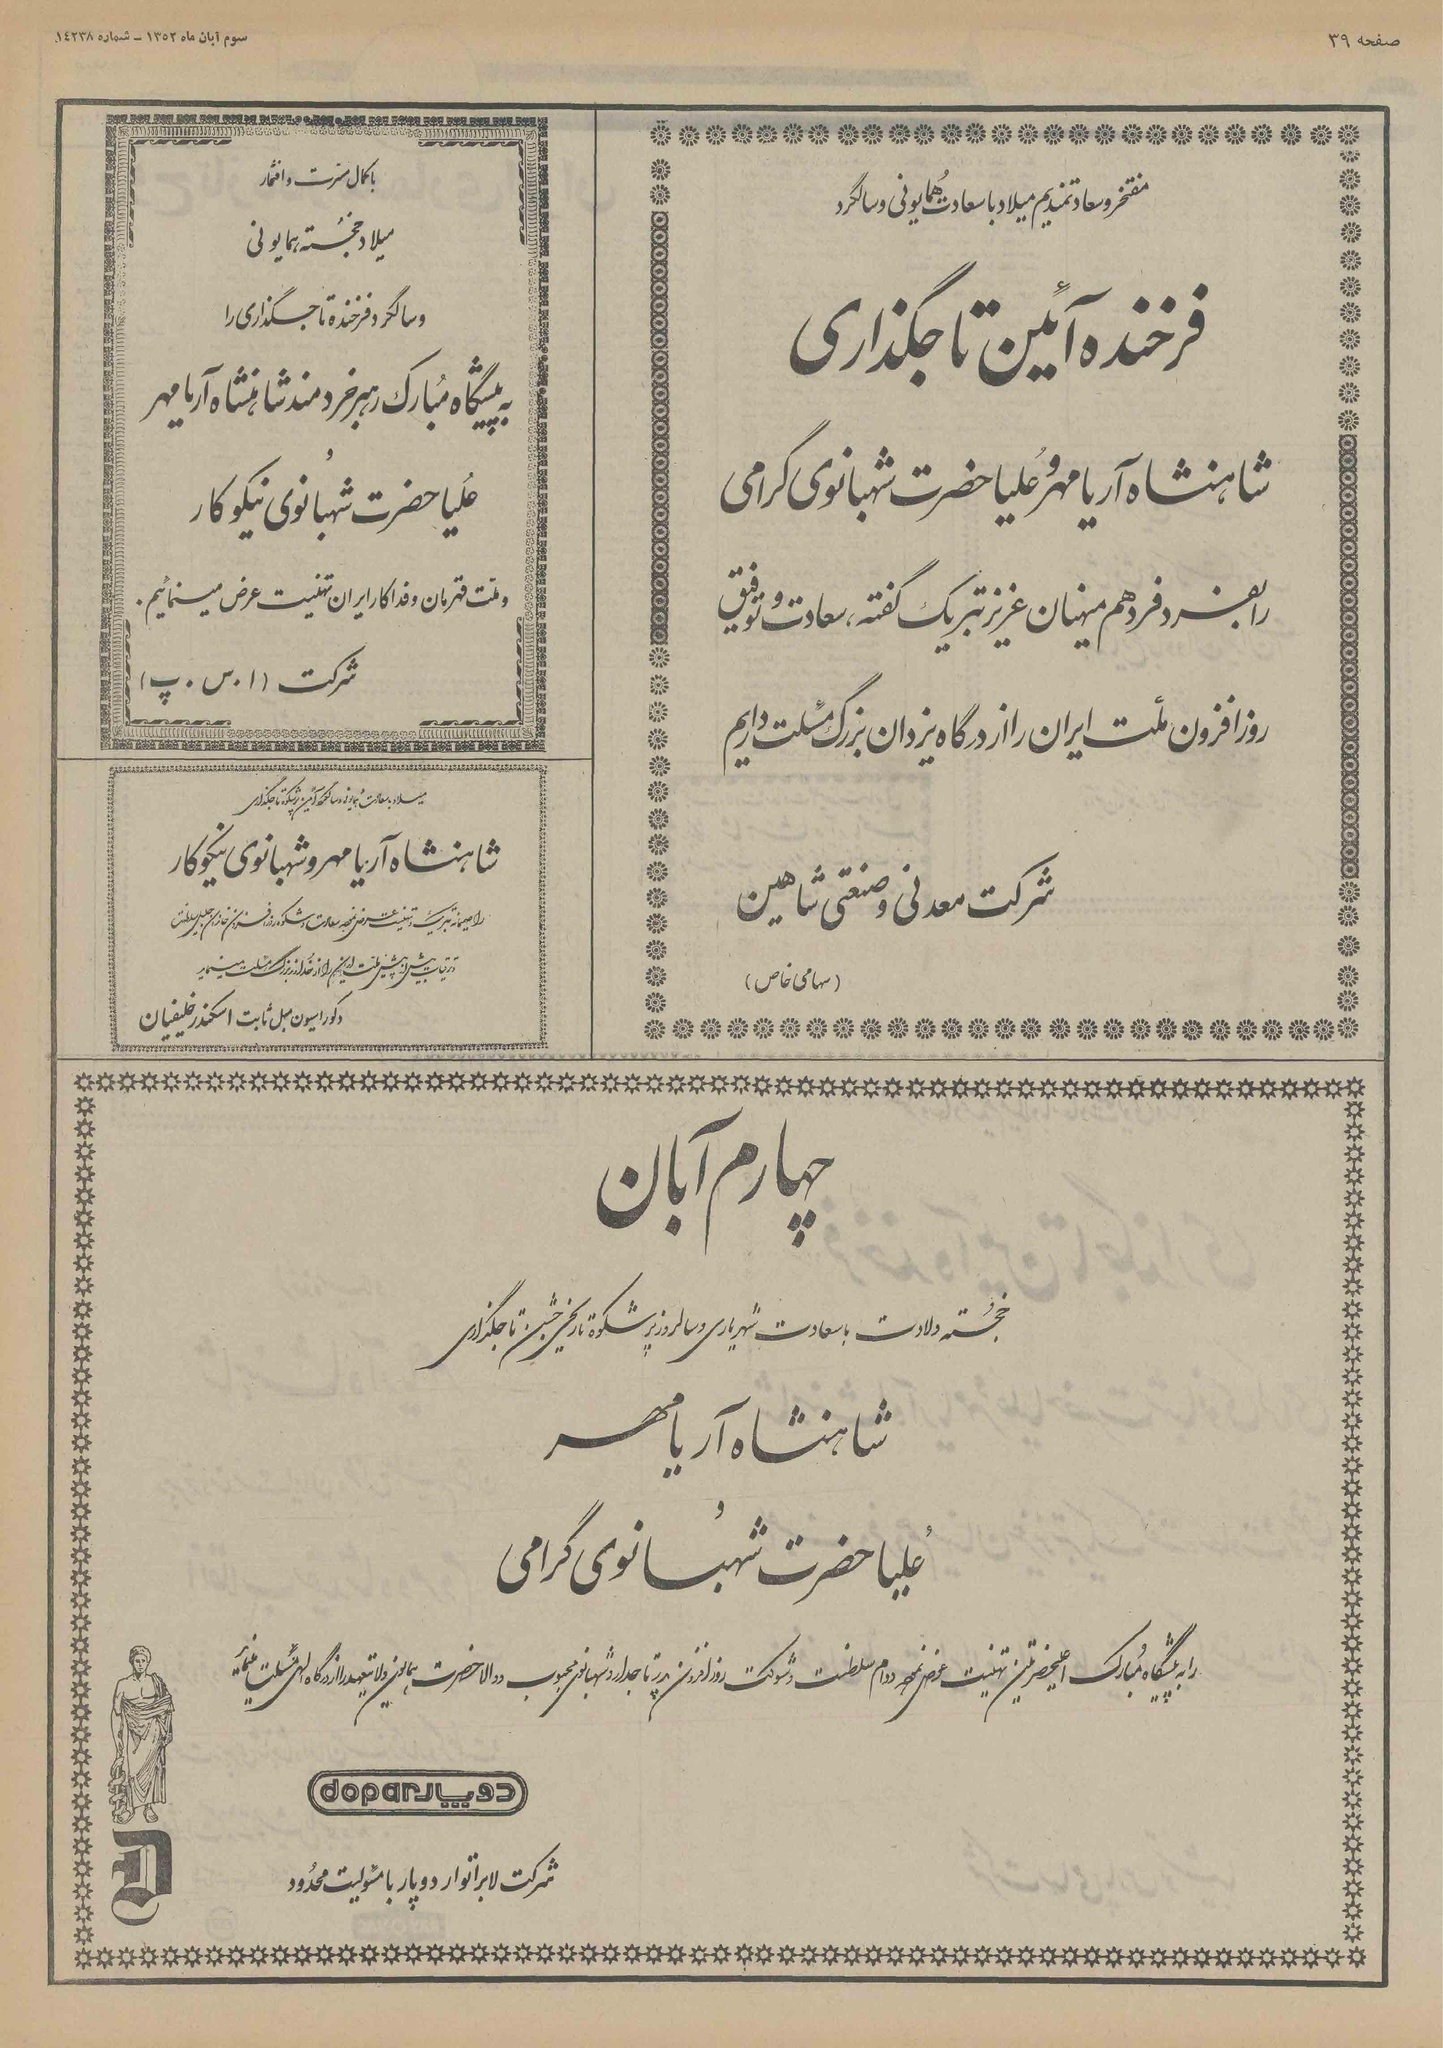 صفحه ۳۹
سوم آبان ماه ۱۳۵۲ – شماره ۱٤۲۳۸
مفتخر و سعادتمندیم میلاد با سعادت همایونی و سالگرد
فرخنده آئین تاجگذاری
شاهنشاه آریامهر و علیا حضرت شهبانوی گرامی
را بفرد فرد هم میهنان عزیز تبریک گفته، سعادت و توفیق
روزافزون ملت ایران را از درگاه یزدان بزرگ مسئلت داریم
شرکت معدنی و صنعتی شاهین
(سهامی خاص)
با کمال مسرت و افتخار
میلاد خجسته همایونی
و سالگرد فرخنده تاجگذاری را
به پیشگاه مبارک رهبر خردمند شاهنشاه آریامهر
و
علیا حضرت شهبانوی نیکوکار
و ملت قهرمان و فداکار ایران تهنیت عرض مینمائیم.
شرکت (ا.س.پ)
میلاد با سعادت همایونی و سالگرد آئین پرشکوه تاجگذاری
شاهنشاه آریا مهر و شهبانوی نیکوکار
را صمیمانه تبریک و تهنیت عرض نموده سعادت و شکوه روزافزون خاندان جلیل سلطنت
ترقیات بیش از پیش ملت ایران را از خدای بزرگ مسئلت مینماید
دکوراسیون مبل ثابت اسکندر خلیفیان
چهارم آبان
خجسته ولادت با سعادت شهریاری و سالروز پرشکوه تاریخی جشن تاجگذاری
شاهنشاه آریا مهر
و
علیا حضرت شهبانوی گرامی
را به پیشگاه مبارک اعلیحضرتین تهنیت عرض نموده دوام سلطنت و شوکت روزافزون پدر تاجدار و شهبانوی محبوب و والاحضرت همایون ولایتعهد را از درگاه الهی مسئلت مینماید
دوپار dopar
شرکت لابراتوار دوپار با مسئولیت محدود
D